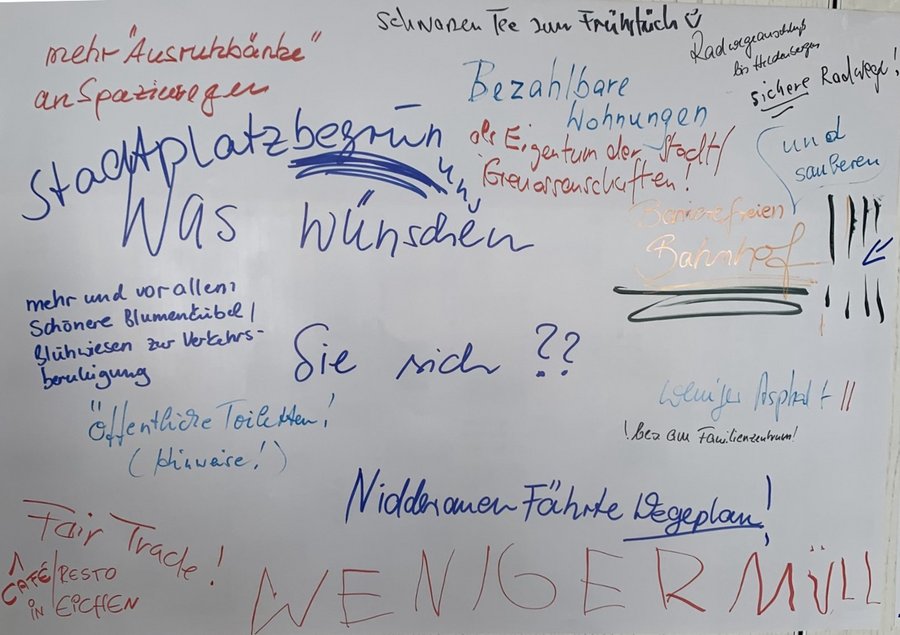 schwarzen Tee zum Frühstück
mehr "Ausruhbänke"
an Spazierwegen
Radwegeanschluß
bis Heldenbergen
sichere Radwege!
Bezahlbare
Wohnungen
als Eigentum der Stadt/
Genossenschaften!
und
sauberen
Barrierefreien
Bahnhof
Stadtplatzbegrün
Was wünschen
Sie sich ??
mehr und vor allem:
Schönere Blumenkübel/
Blühwiesen zur Verkehrs-
beruhigung
Öffentliche Toiletten!
(Hinweise!)
weniger Asphalt
!bes am Familienzentrum!
Wegeplan!
Fair Trade!
1 CAFÉ/RESTO
IN EICHEN
WENIGER MÜLL